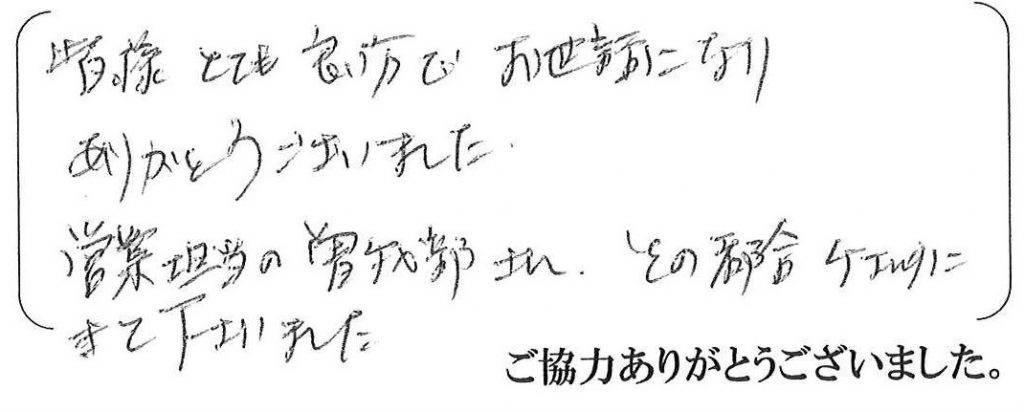 皆様 とても 良い方で お世話になり
ありがとうございました.
営業担当の 曽我部さん. その都合 に
きて下さいました
ご協力ありがとうございました。